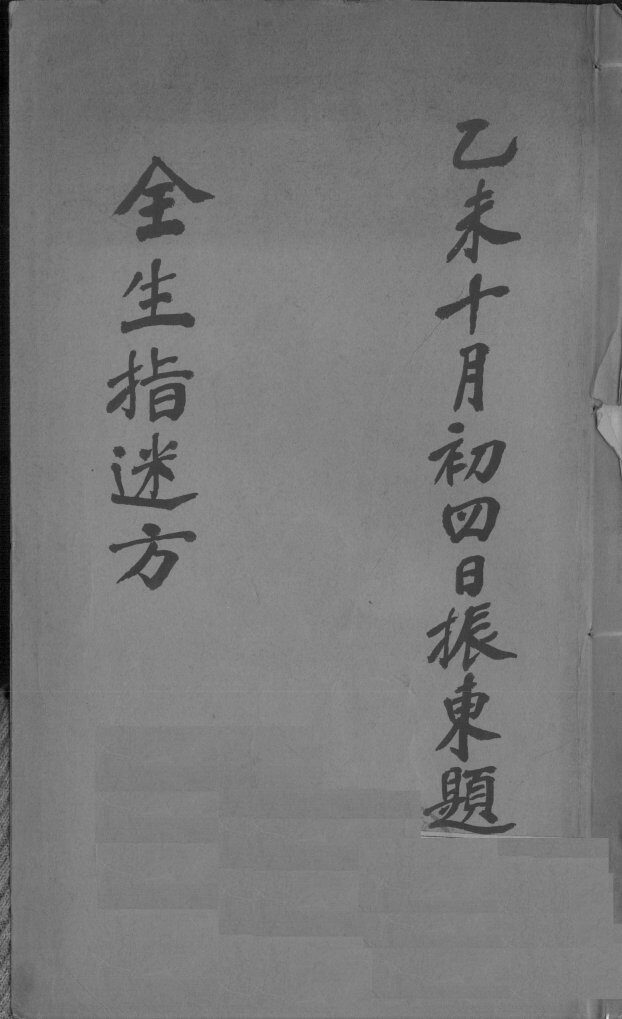 乙未十月初四日振東題
全生指迷方